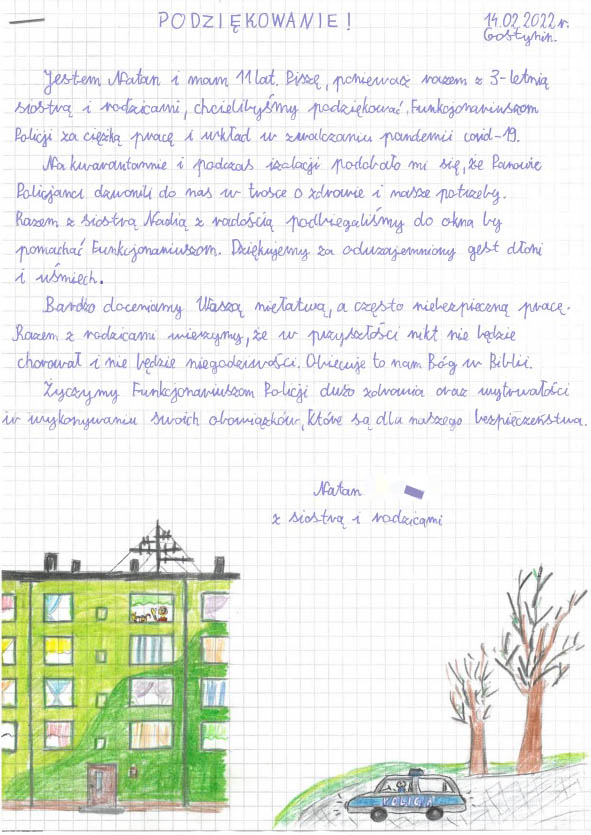 PODZIĘKOWANIE!
14.02.2022r.
Gostynin.
Jestem Natan i mam 11 lat. Piszę, ponieważ razem z 3-letnią
siostrą i rodzicami, chcielibyśmy podziękować Funkcjonariuszom
Policji za ciężką pracę i wkład w zwalczaniu pandemii covid-19.
Na kwarantannie i podczas izolacji podobało mi się, że Panowie
Policjanci dzwonili do nas w trosce o zdrowie i nasze potrzeby.
Razem z siostrą Nadią z radością podbiegaliśmy do okna by
pomachać Funkcjonariuszom. Dziękujemy za odwzajemniony gest dłoni
i uśmiech.
Bardzo doceniamy Waszą niełatwą, a często niebezpieczną pracę.
Razem z rodzicami wierzymy, że w przyszłości nikt nie będzie
chorował i nie będzie niegodziwości. Obiecuje to nam Bóg w Biblii.
Życzymy Funkcjonariuszom Policji dużo zdrowia oraz wytrwałości
w wykonywaniu swoich obowiązków, które są dla naszego bezpieczeństwa.
Natan
z siostrą i rodzicami
POLICJA